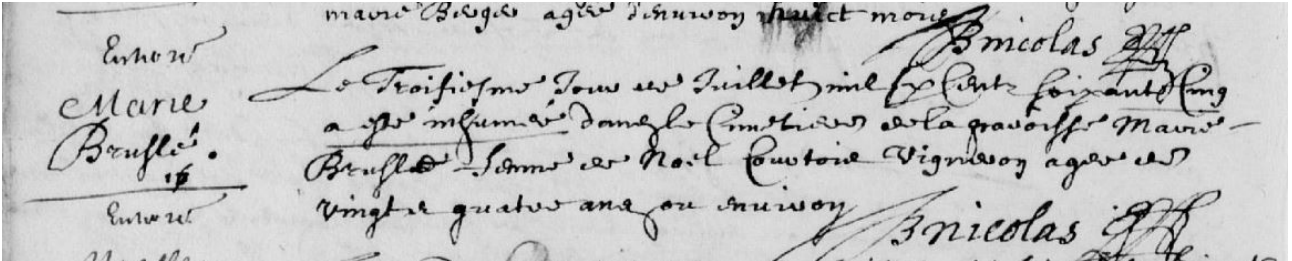 marie Berger agee d'environ huict mois
Bnicolas
Enterré
Marie
Bruslé.
Le Troisiesme Jour de Juillet mil six Cents soixante Cinq
a esté inhumée dans le Cimetiere de la parroisse Marie
Bruslé femme de Noel Courtois Vigneron agee de
vingt quatre ans ou environ
Bnicolas
Enterré